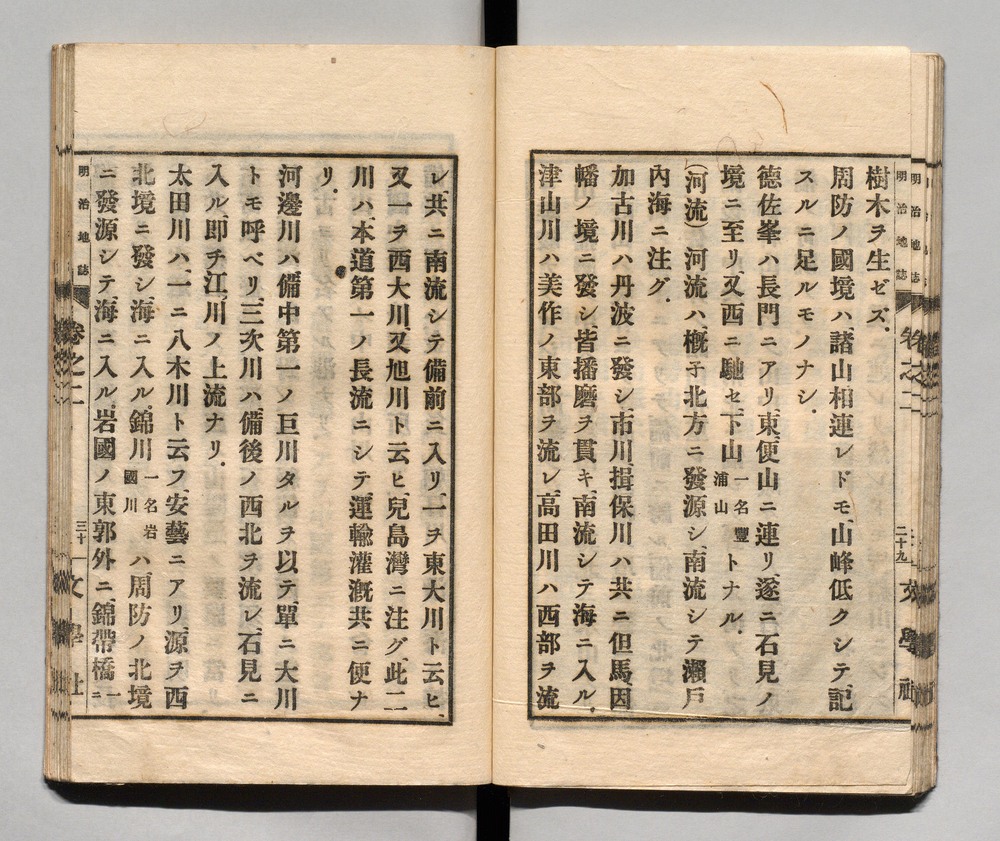 樹木ヲ生ゼズ.
周防ノ國境ハ、諸山相連レドモ、山峰低クシテ記
スルニ足ルモノナシ.
德佐峯ハ長門ニアリ、東、便山ニ連リ、遂ニ石見ノ
境ニ至リ、又西ニ馳セ、下山一名豐浦山トナル.
(河流)河流ハ、槪子北方ニ發源シ、南流シテ瀨戸
內海ニ注グ.
加古川ハ丹波ニ發シ、市川、揖保川ハ共ニ但馬因
幡ノ境ニ發シ、皆播磨ヲ貫キ、南流シテ海ニ入ル.
津山川ハ美作ノ東部ヲ流レ、高田川ハ西部ヲ流
明治地誌 卷之二 二十九 文學社
レ、共ニ南流シテ備前ニ入リ、一ヲ東大川ト云ヒ、
又一ヲ西大川、又旭川ト云ヒ、兒島灣ニ注グ、此二
川ハ、本道第一ノ長流ニシテ、運輸灌漑共ニ便ナ
リ.
河邊川ハ、備中第一ノ巨川タルヲ以テ、單ニ大川
トモ呼ベリ、三次川ハ、備後ノ西北ヲ流レ、石見ニ
入ル、卽チ江川ノ上流ナリ.
太田川ハ、一ニ八木川ト云フ、安藝ニアリ、源ヲ西
北境ニ發シ、海ニ入ル、錦川一名岩國川ハ周防ノ北境
ニ發源シテ、海ニ入ル、岩國ノ東郭外ニ、錦帶橋一ニ
明治地誌 卷之二 三十 文學社